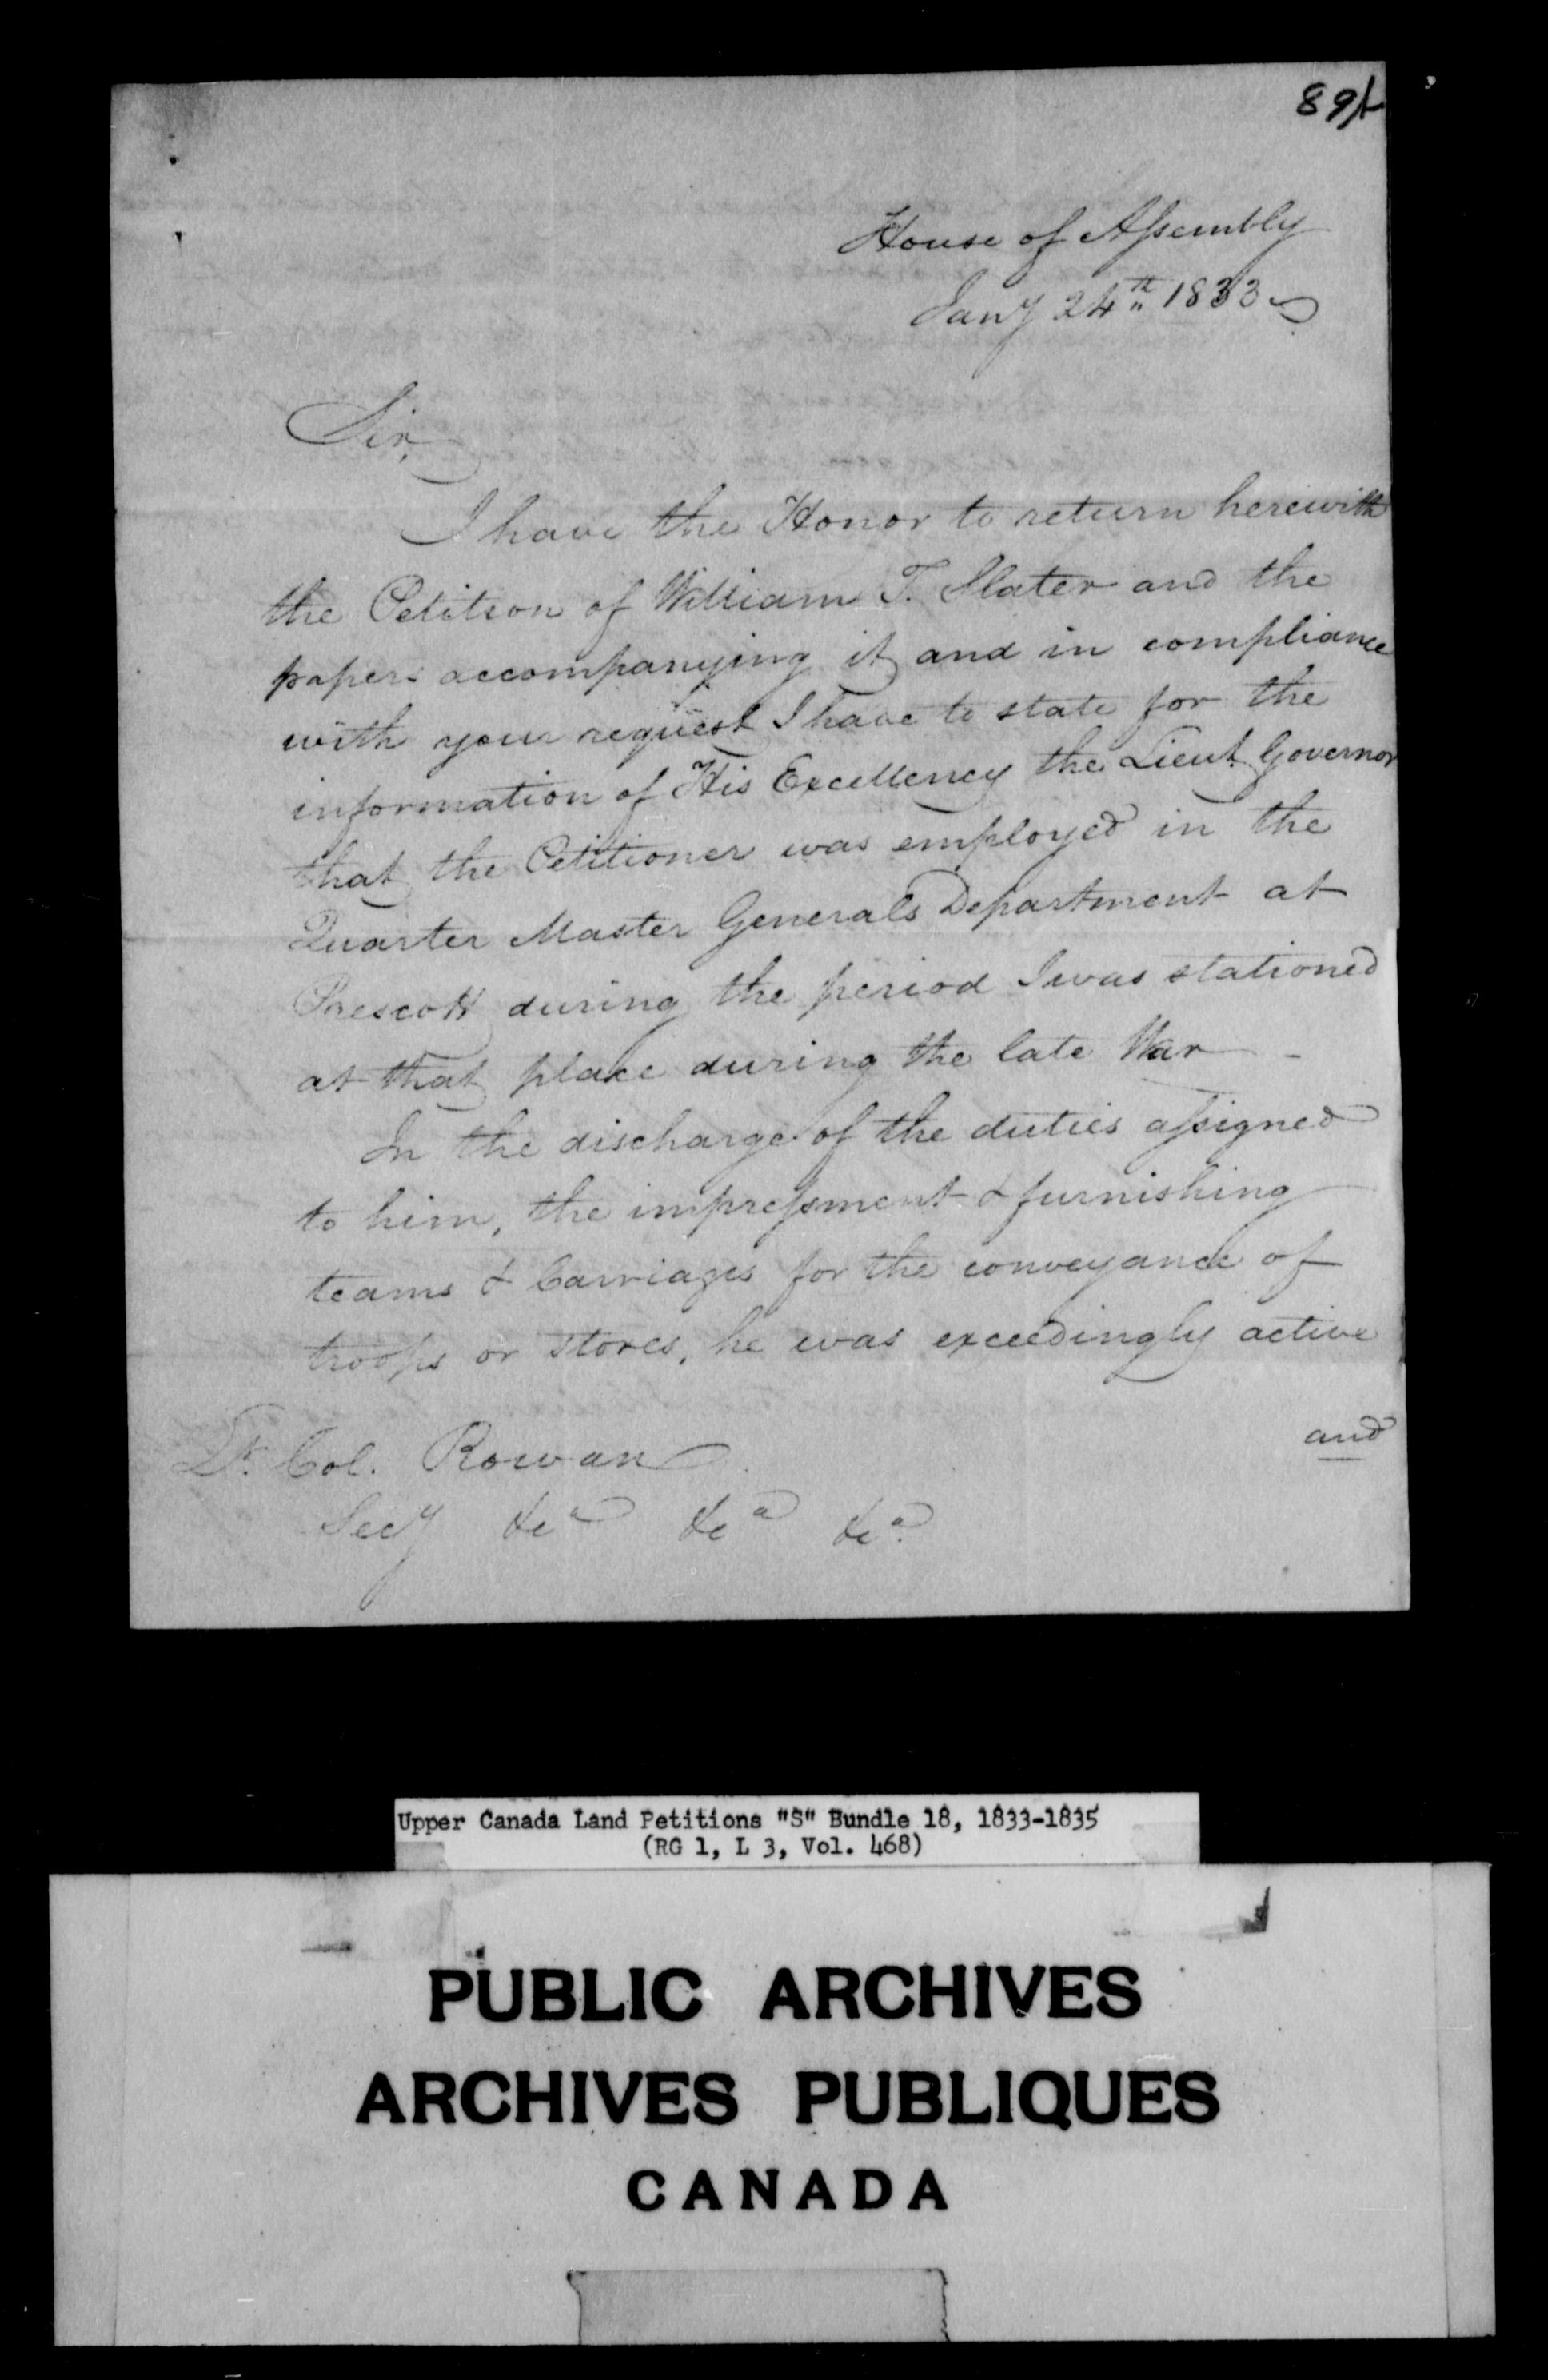 89f
House of Assembly
Jany 24th 1833
Sir,
I have the Honor to return herewith
the Petition of William T. Slater and the
papers accompanying it and in compliance
with your request I have to state for the
information of His Excellency the Lieut. Governor
that the Petitioner was employed in the
Quarter Master Generals Department at
Prescott during the period I was stationed
at that place during the late War -
In the discharge of the duties assigned
to him, the impressment & furnishing
teams & Carriages for the conveyance of
troops or stores, he was exceedingly active
and
Lt. Col. Rowan
Secy &ca &ca &ca.
Upper Canada Land Petitions "S" Bundle 18, 1833-1835
(RG 1, L 3, Vol. 468)
PUBLIC ARCHIVES
ARCHIVES PUBLIQUES
CANADA